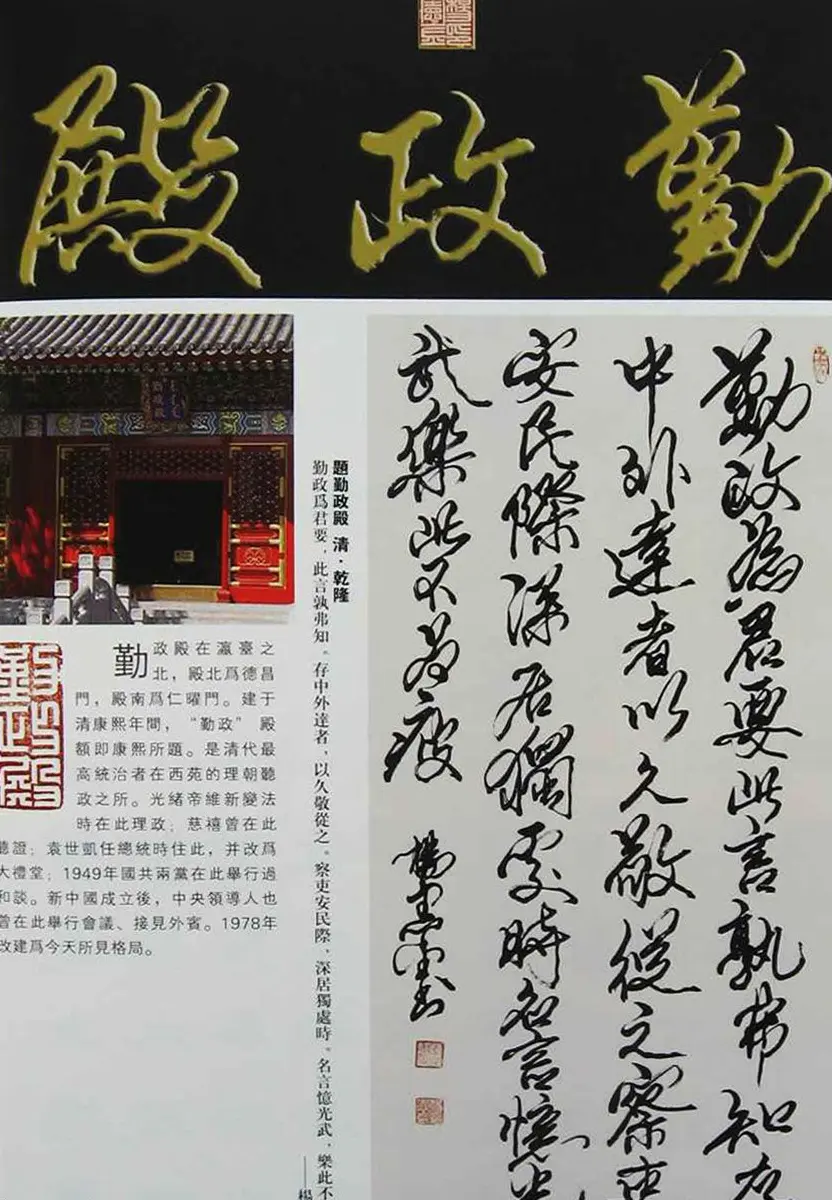 勤政殿
勤政殿
勤政為君要此言孰弗知存
中外達者以久敬從之察吏
安民際深居獨處時名言憶光
武樂此不為疲
題勤政殿 清·乾隆
勤政爲君要，此言孰弗知。存中外達者，以久敬從之。察吏安民際，深居獨處時。名言憶光武，樂此不
——楊
勤政殿在瀛臺之
北，殿北爲德昌
門，殿南爲仁曜門。建于
清康熙年間，“勤政” 殿
額即康熙所題。是清代最
高統治者在西苑的理朝聽
政之所。光緒帝維新變法
時在此理政；慈禧曾在此
聽證；袁世凱任總統時住此，并改爲
大禮堂；1949年國共兩黨在此舉行過
和談。新中國成立後，中央領導人也
曾在此舉行會議、接見外賓。1978年
改建爲今天所見格局。